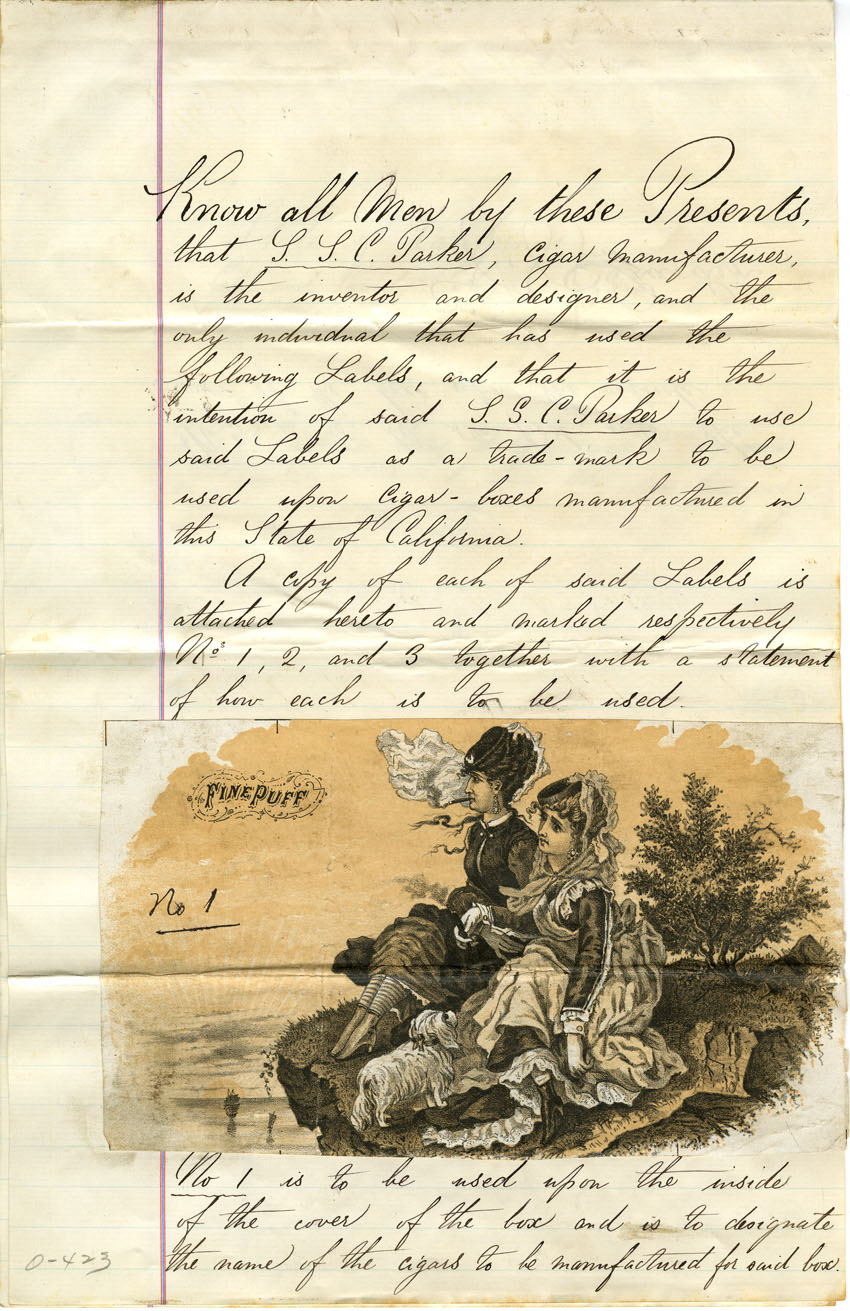 Know all Men by these Presents,
that S. S. C. Parker, cigar manufacturer,
is the inventor and designer, and the
only individual that has used the
following Labels, and that it is the
intention of said S. S. C. Parker to use
said Labels as a trade-mark to be
used upon cigar-boxes manufactured in
this State of California.
A copy of each of said Labels is
attached hereto and marked respectively
Nos 1, 2, and 3 together with a statement
of how each is to be used.
FINE PUFF
No 1
No 1 is to be used upon the inside
of the cover of the box and is to designate
the name of the cigars to be manufactured for said box.
0-423